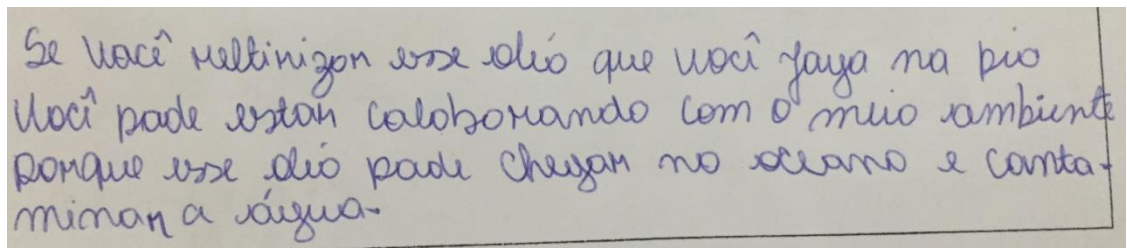 Se você reltinizar esse olió que você jaga na pio
você pode estar caloborando com o meio ambiente
porque esse olió pode chegar no oceano e conta-
minar a água.